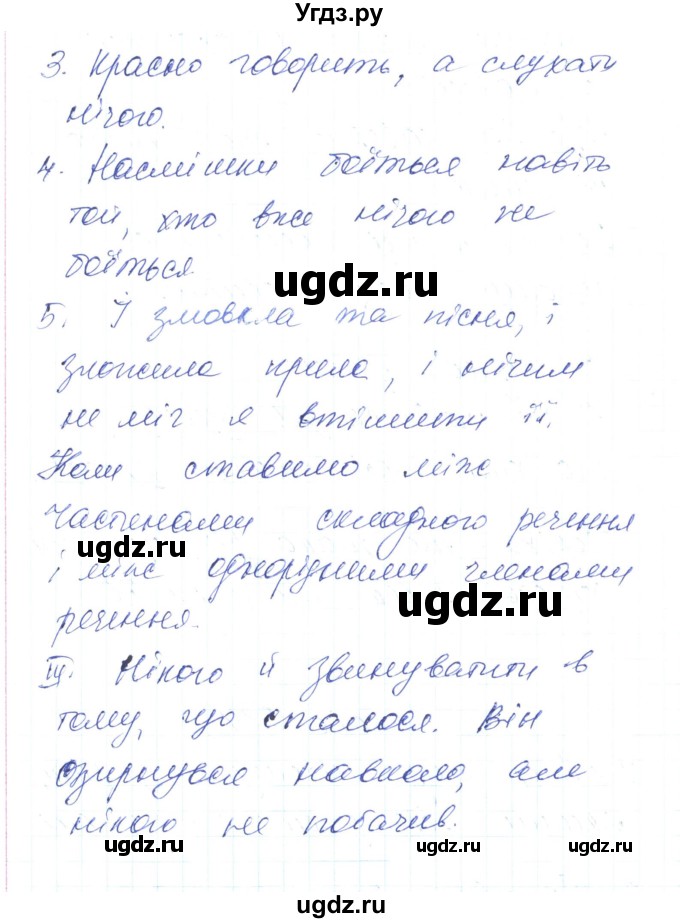 Угдз.ру
3. Красно говорить, а слухати
нічого.
4. Насмішки боїться навіть
той, хто вже нічого не
боїться.
ugdz.ru
5. І змовкла та пісня, і
зложила крила, і нічим
не міг я втішити її.
Коми ставимо між
частинами складного речення
ugdz.ru
і між однорідними членами
ugdz.ru
речення.
III. Нікого й звинуватити в
тому, що сталося. Він
озирнувся навколо, але
нікого не побачив.
ugdz.ru
ugdz.ru
ugdz.ru